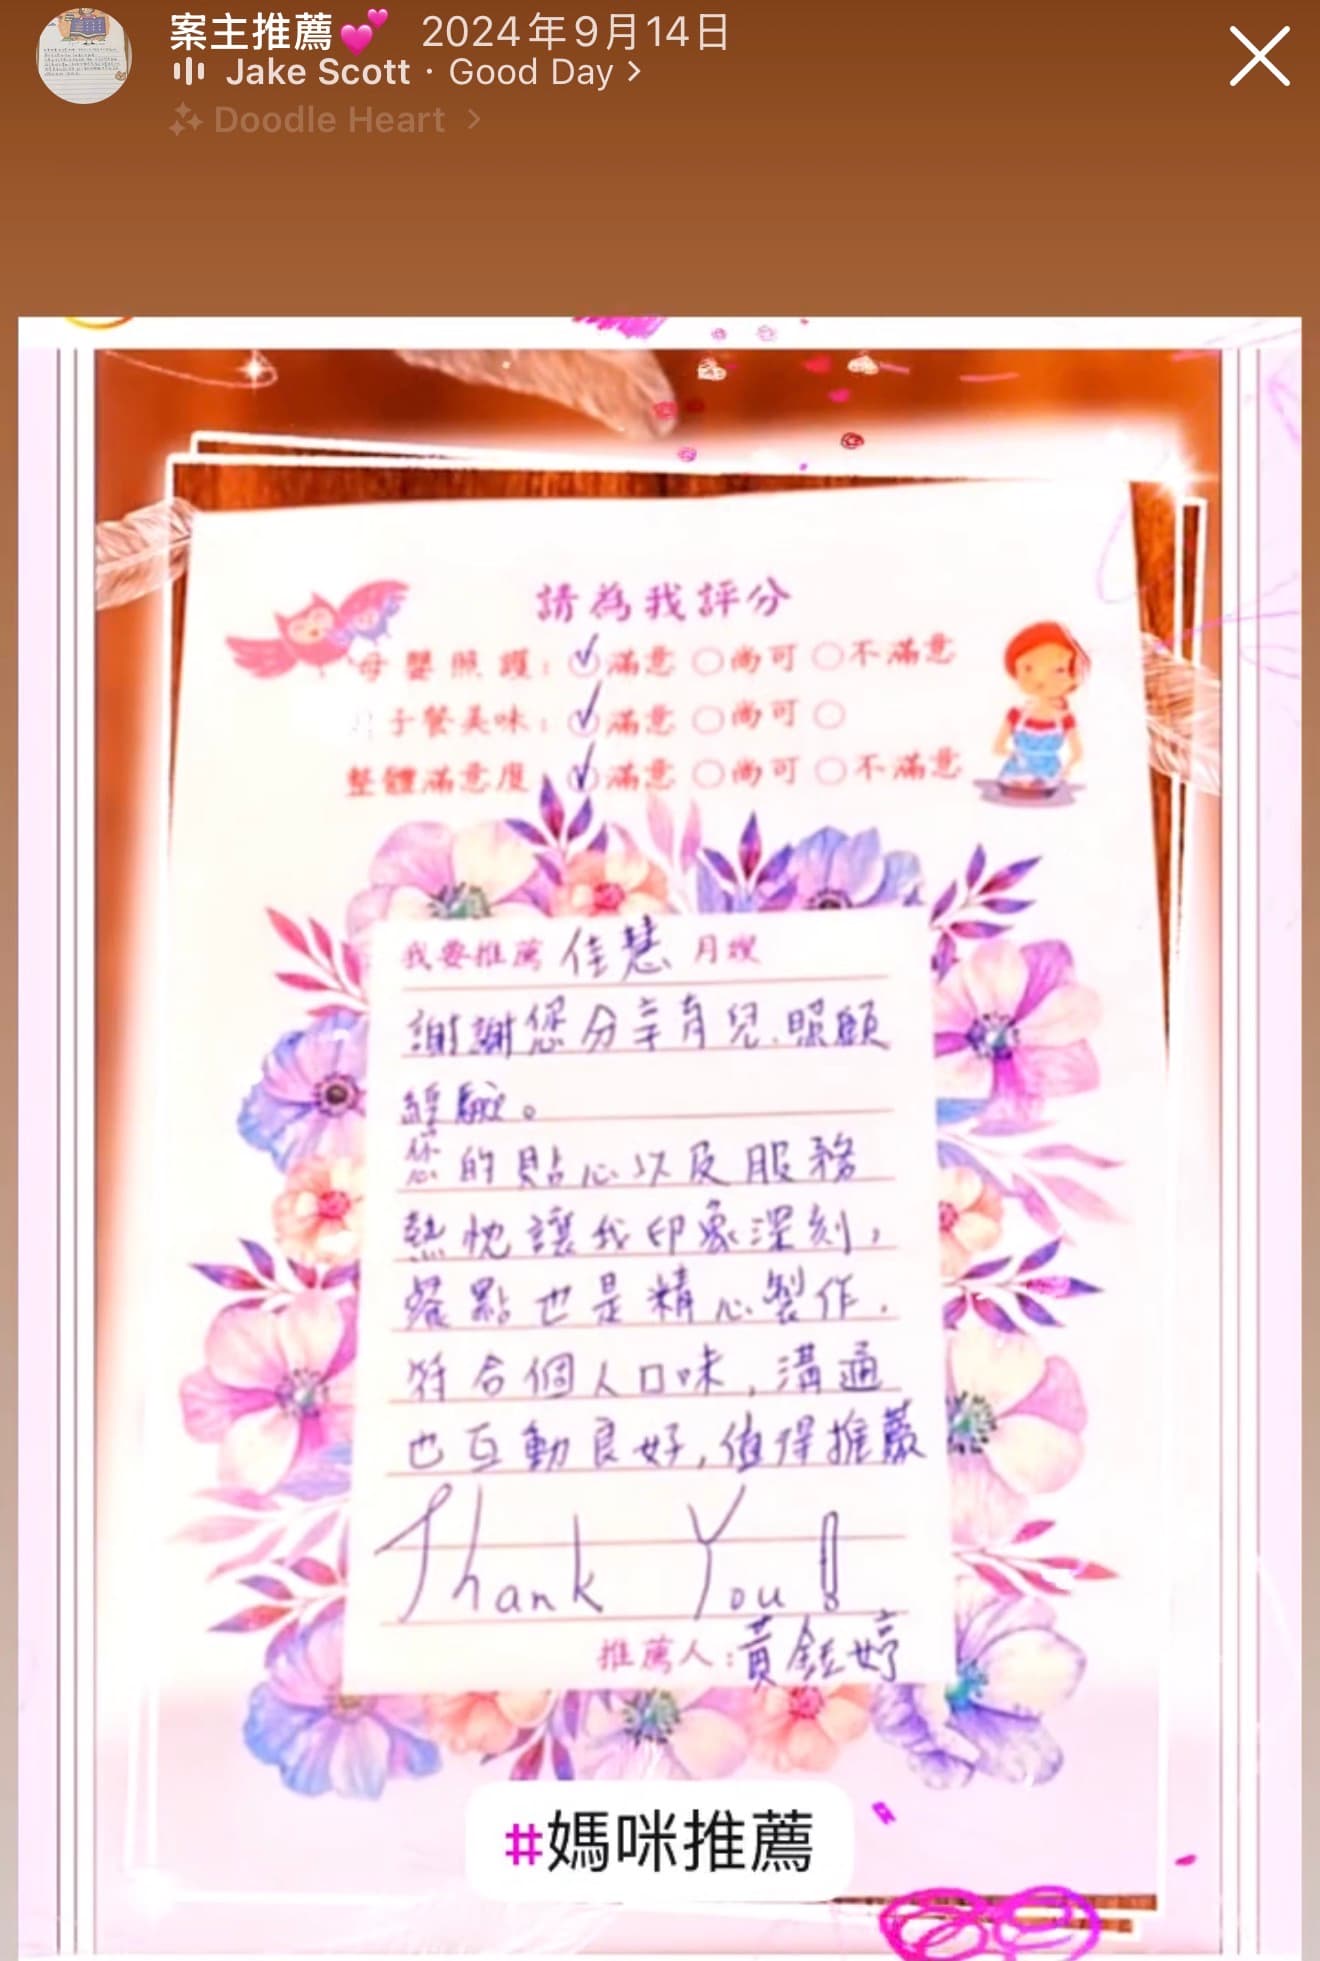 案主推薦💕 2024年9月14日
Jake Scott · Good Day >
Doodle Heart >
請為我評分
母嬰照護：滿意 尚可 不滿意
子餐美味：滿意 尚可
整體滿意度 滿意 尚可 不滿意
我要推薦 佳慧 月嫂
謝謝您分享育兒、照顧
經驗。
您的貼心以及服務
熱忱讓我印象深刻，
餐點也是精心製作，
符合個人口味，溝通
也互動良好，值得推薦
Thank You!
推薦人：黃鈺婷
#媽咪推薦